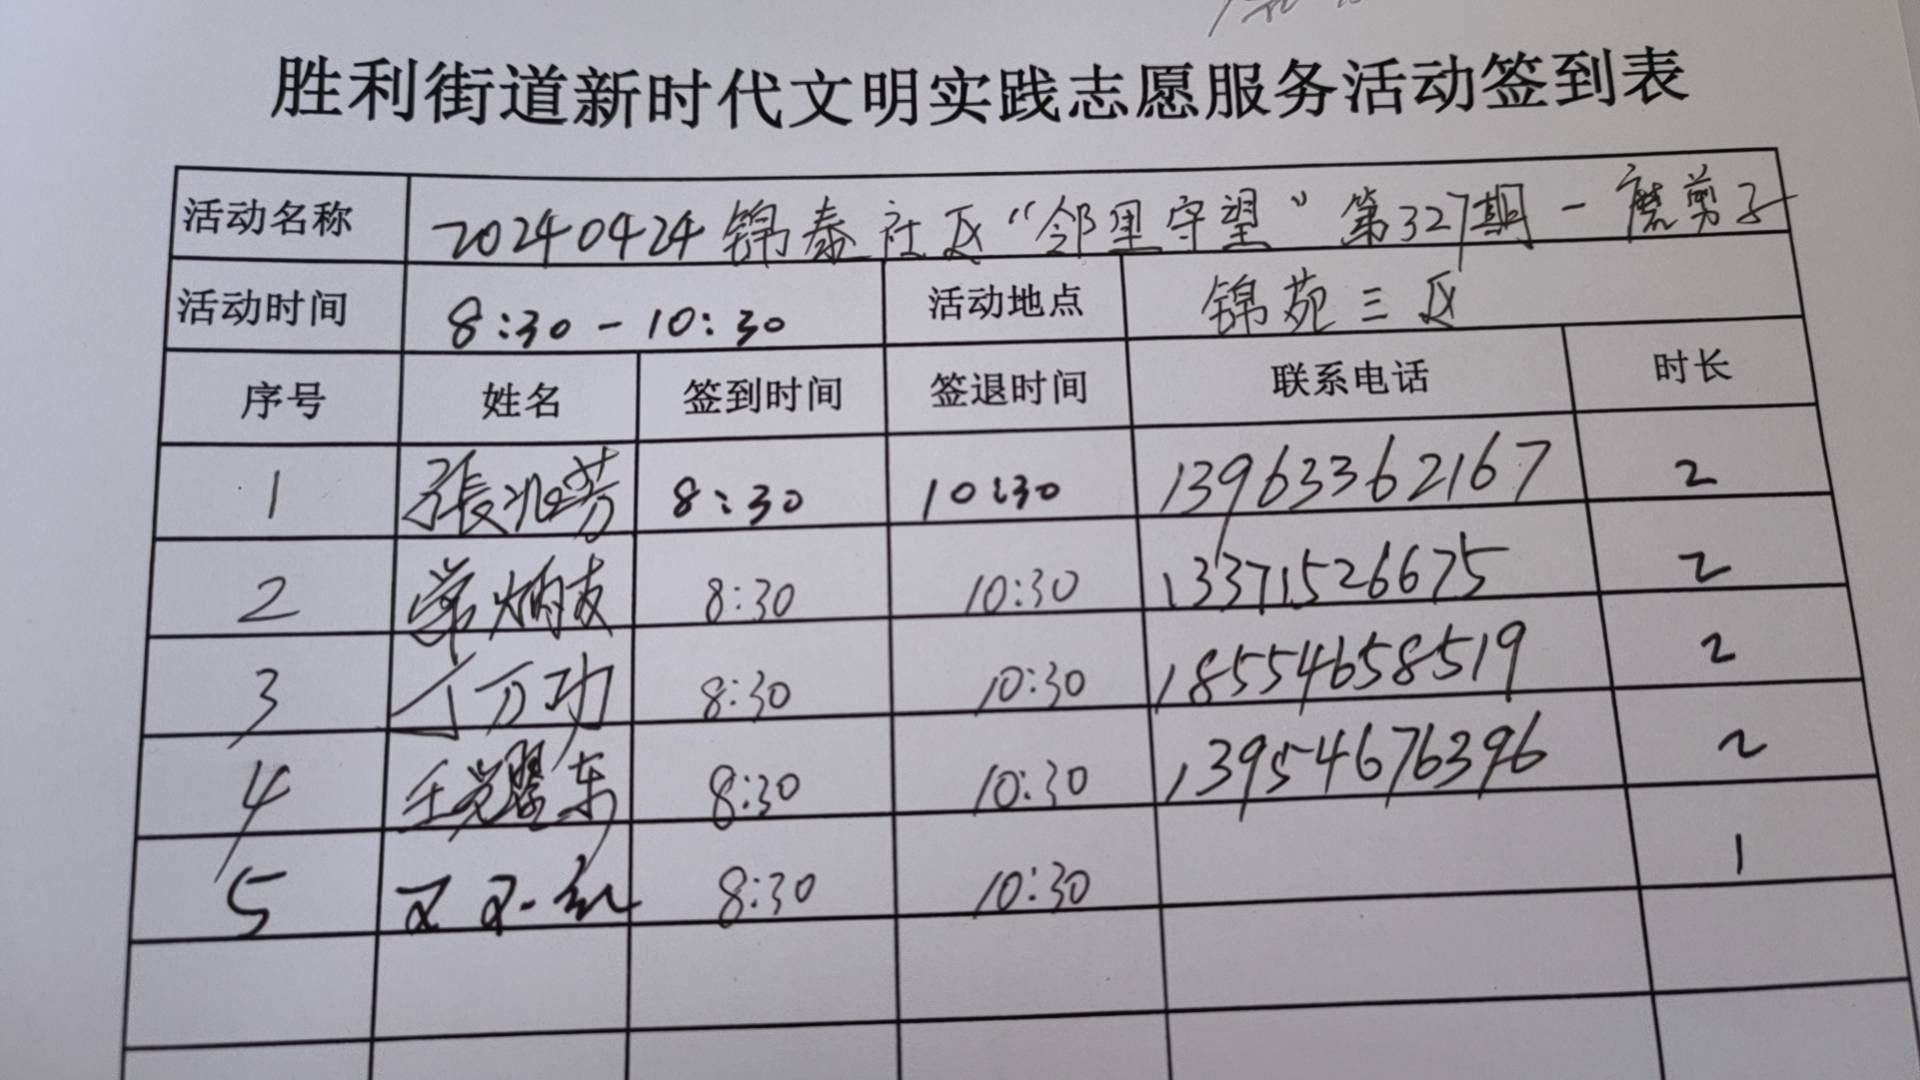 胜利街道新时代文明实践志愿服务活动签到表
活动名称 20240424锦泰社区“邻里守望”第327期-磨剪子
活动时间 8:30-10:30 活动地点 锦苑三区
序号 姓名 签到时间 签退时间 联系电话 时长
1 張兆芳 8:30 10:30 13963362167 2
2 常炳友 8:30 10:30 13371526675 2
3 丁万功 8:30 10:30 18554658519 2
4 王耀东 8:30 10:30 13954676396 2
5 8:30 10:30 1